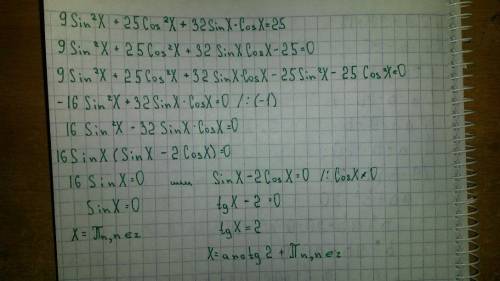 9 Sin²X + 25 Cos²X + 32 SinX · CosX = 25
9 Sin²X + 25 Cos²X + 32 SinX CosX - 25 = 0
9 Sin²X + 25 Cos²X + 32 SinX · CosX - 25 Sin²X - 25 Cos²X = 0
-16 Sin²X + 32 SinX · CosX = 0 /:(-1)
16 Sin²X - 32 SinX · CosX = 0
16 SinX (SinX - 2 CosX) = 0
16 SinX = 0 или SinX - 2 CosX = 0 /: CosX ≠ 0
SinX = 0 tgX - 2 = 0
X = πn, n∈z tgX = 2
X = arctg 2 + πn, n∈z